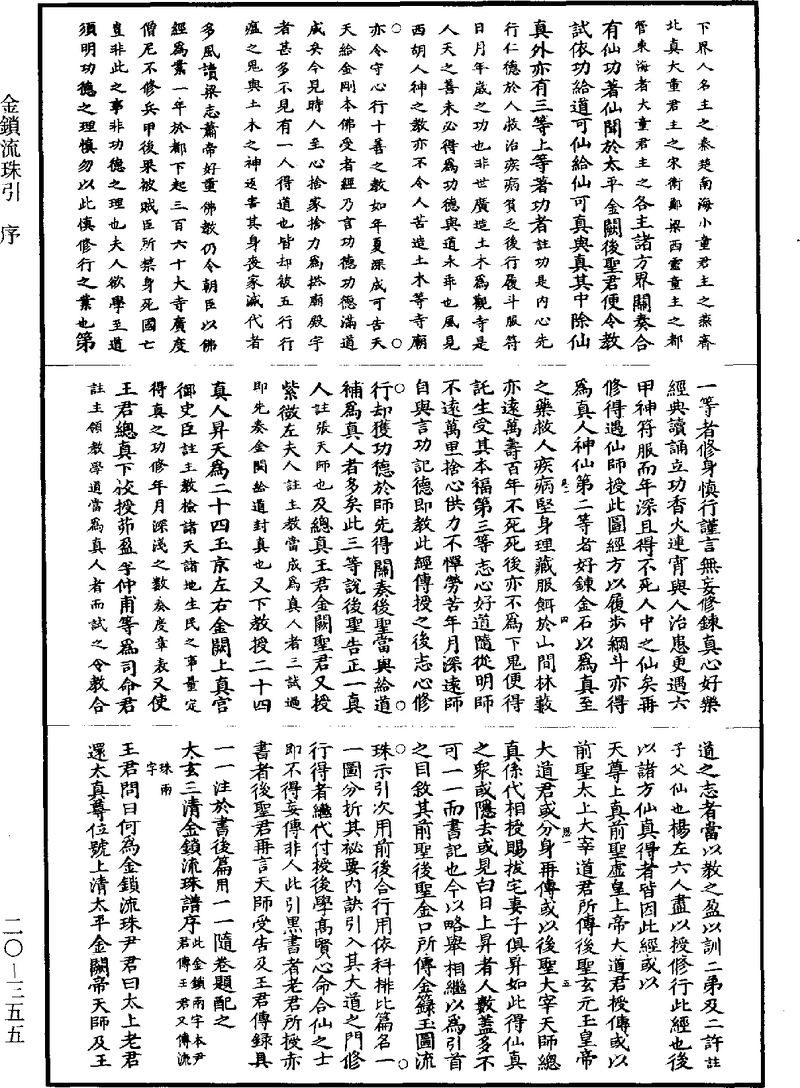 金鎖流珠引 序
二〇—三五五
下界人名主之秦楚南海小童君主之燕齊
北真大童君主之宋衛鄭梁西靈童主之都
管東海者大童君主之各主諸方界關奏合
有仙功著仙聞於太平金闕後聖君便令教
試依功給道可仙給仙可真與真其中除仙
真外亦有三等上等著功者註功是内心先
行仁德於人救治疾病貧乏後行履斗服符
日月年歲之功也非世廣造土木為觀寺是
人天之善未必得為功德與道未乖也風見
西胡人神之教亦不令人苦造土木等寺廟
亦令守心行十善之教如年夏深成可告天
天給金剛本佛受者經乃言功德功德滿道
成矣今見時人至心捨家捨力為搭廟殿宇
者甚多不見有一人得道也皆却彼五行行
瘟之鬼與土木之神返害其身喪家滅代者
多風讀梁志蕭帝好重佛教仍令朝臣以佛
經為業一年於都下起三百六十大寺廣度
僧尼不修兵甲後果被賊臣所禁身死國亡
豈非此之事非功德之理也夫人欲學至道
須明功德之理慎勿以此慎修行之業也第
一等者修身慎行謹言無妄修鍊真心好樂
經典讀誦立功香火連宵與人治患更遇六
甲神符服而年深且得不死人中之仙矣再
修得遇仙師授此圖經方以履步綱斗亦得
為真人神仙第二等者好鍊金石以為真至
之藥救人疾病堅身理藏服餌於山間林藪
亦遠萬壽百年不死死後亦不為下鬼便得
託生受其本福第三等志心好道隨從明師
不遠萬里捨心供力不憚勞苦年月深遠師
自與言功記德即教此經傳授之後志心修
行却獲功德於師先得關奏後聖當與給道
補為真人者多矣此三等說後聖告正一真
人註張天師也及總真王君金闕聖君又授
紫微左夫人註主教當成為真人者三試過
即先奏金闕給道封真也又下教授二十四
真人昇天為二十四玉京左右金闕上真官
御史臣註主教檢諸天諸地生民之事量定
得真之功修年月深淺之數奏度章表又使
王君總真下校授茆盈字仲甫等為司命君
註主領教學道當為真人者而試之令教合
道之志者當以教之盈以訓二弟及二許註
子父仙也楊左六人盡以授修行此經也後
以諸方仙真得者皆因此經或以
天尊上真前聖虛皇上帝大道君授傳或以
前聖太上大宰道君所傳後聖玄元玉皇帝
大道君或分身再傳或以後聖大宰天師總
真係代相授賜拔宅妻子俱昇如此得仙真
之衆或隱去或見白日上昇者人數蓋多不
可一一而書記也今以略舉相繼以為引首
之目敘其前聖後聖金口所傳金籙玉圖流
珠示引次用前後合行用依科排比篇名一
一圖分析其祕要內訣引入其大道之門修
行得者繼代付授後學高賢心命合仙之士
即不得妄傳非人此引黑書者老君所授亦
書者後聖君再言天師受告及王君傳錄具
一一注於書後篇用一一隨卷題配之
大玄三清金鎖流珠譜序此金鎖兩字本尹君傳王君又傳流珠兩字
王君問曰何為金鎖流珠尹君曰太上老君
還太真尊位號上清太平金闕帝天師及王